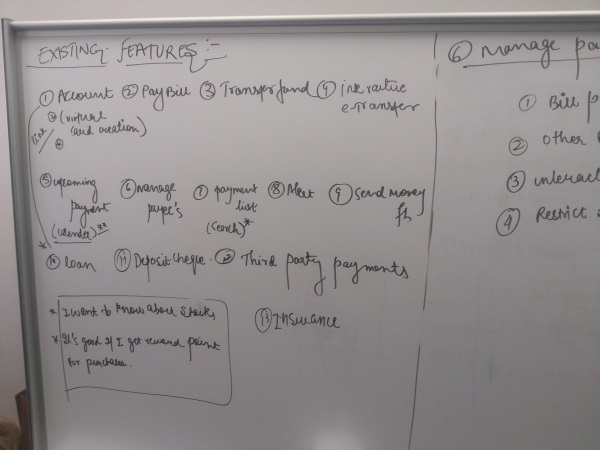 EXISTING FEATURES :-
① Account ② Pay Bill ③ Transfer fund ④ interactive
e-Transfer
(virtual
card creation)
⑤ upcoming
payment
(calender)**
⑥ manage
payee's
⑦ payment
list
(search)*
⑧ Alert ⑨ Send money
⑩ loan ⑪ Deposit Cheqe. ⑫ Third party payments
* I want to know about stocks
* It's good if I get reward point
for purchase.
⑬ Insurance
⑥ manage pa
① Bill p
② Other
③ interac
④ Restrict